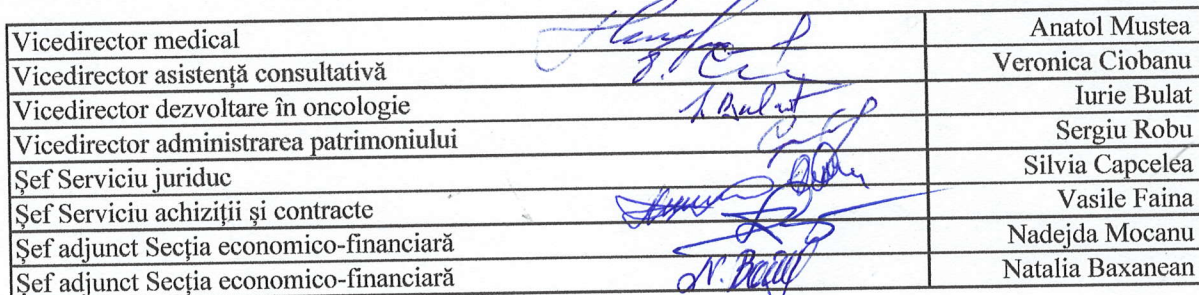 Vicedirector medical Anatol Mustea
Vicedirector asistență consultativă Veronica Ciobanu
Vicedirector dezvoltare în oncologie I. Bulat Iurie Bulat
Vicedirector administrarea patrimoniului Sergiu Robu
Șef Serviciu juriduc Silvia Capcelea
Șef Serviciu achiziții și contracte Vasile Faina
Șef adjunct Secția economico-financiară Nadejda Mocanu
Șef adjunct Secția economico-financiară Natalia Baxanean